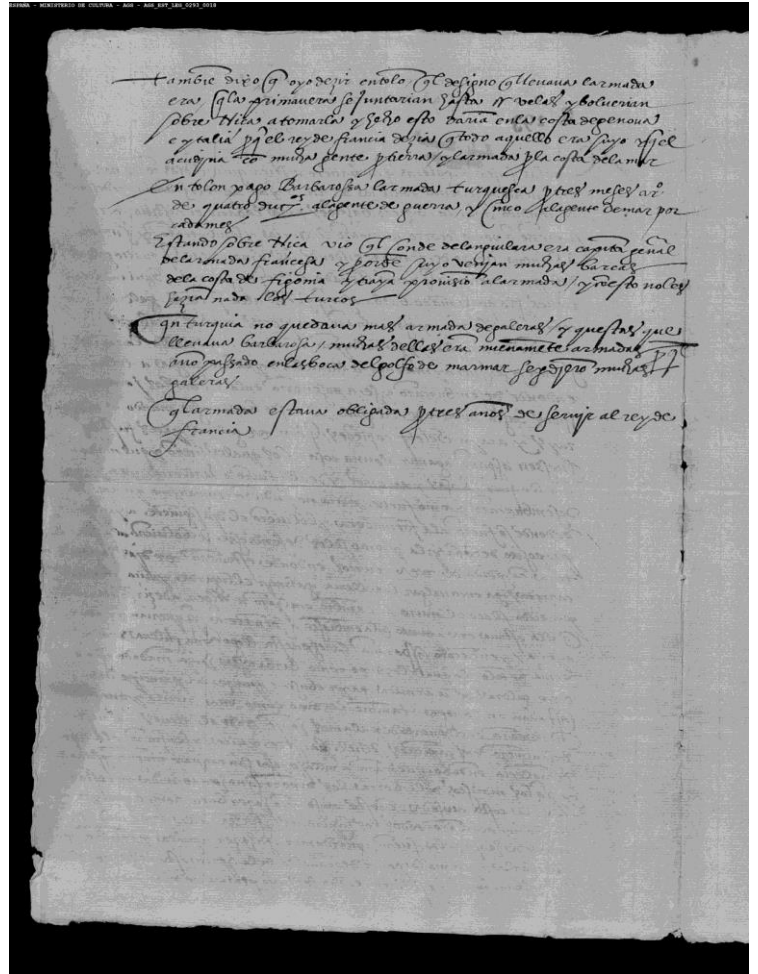 ESPAÑA - MINISTERIO DE CULTURA - AGS - AGS_EST_LEG_0293_0018
tambie dixo q oyo dezir en tolo q̃l designo q̃ llevava larmada
era q̃ la primavera se juntarian hasta velas y bolverian
sobre Niça a tomarla y hecho esto daria en la costa de genova
e ytalia pq̃ el rey de francia dezia q̃ todo aquello era suyo
acudiria cõ mucha gente p tierra / y larmada p la costa de la mar
En tolon pago Barbarossa larmada turquesca p tres meses
de quatro duc.os a la gente de guerra, y cinco a la gente de mar por
cada mes
Estando sobre Niça vio q̃l conde de languilara era capitã genãl
de larmada francesa y porde suyo venyan muchas barcas
de la costa de y traya provisiõ a larmada / y cõ esto no les
nada los turcos
En turquia no quedava mas armada de galeras / y questas que
llevava barbarosa / muchas dellas erã nuevamẽte armadas
año passado en las boca del golfo de marmar se pdierõ muchas
galeras /
q̃ larmada estava obligada p tres años de servir al rey de
francia